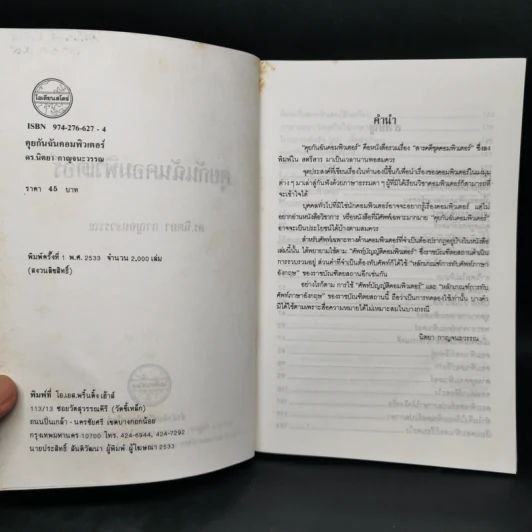 โอเดียนสโตร์
ISBN 974-276-627-4
คุยกันฉันคอมพิวเตอร์
ดร.นิตยา กาญจนะวรรณ
ราคา 45 บาท
พิมพ์ครั้งที่ 1 พ.ศ. 2533 จำนวน 2,000 เล่ม
(สงวนลิขสิทธิ์)
พิมพ์ที่ โอ.เอส.พริ้นติ้ง เฮ้าส์
113/13 ซอยวัดสุวรรณคีรี (วัดขี้เหล็ก)
ถนนปิ่นเกล้า - นครชัยศรี เขตบางกอกน้อย
กรุงเทพมหานคร 10700 โทร. 424-6944, 424-7292
นายประสิทธิ์ สันติวัฒนา ผู้พิมพ์ ผู้โฆษณา 2533
คำนำ
"คุยกันฉันคอมพิวเตอร์" คือหนังสือรวมเรื่อง "สารคดีชุดคอมพิวเตอร์" ซึ่งลง
พิมพ์ใน สตรีสาร มาเป็นเวลานานพอสมควร
จุดประสงค์ที่เขียนเรื่องในทำนองนี้ขึ้นก็เพื่อนำเรื่องของคอมพิวเตอร์ในแง่มุม
ต่าง ๆ มาเล่าสู่กันฟังด้วยภาษาธรรมดา ๆ ผู้ที่มิได้เรียนวิชาคอมพิวเตอร์ก็สามารถที่
จะเข้าใจได้
บุคคลทั่วไปที่มิใช่นักคอมพิวเตอร์อาจจะอยากรู้เรื่องคอมพิวเตอร์ แต่ไม่
อยากอ่านหนังสือวิชาการ หรือหนังสือที่มีศัพท์เฉพาะมากมาย "คุยกันฉันคอมพิวเตอร์"
อาจจะเป็นประโยชน์ได้บ้างตามสมควร
สำหรับศัพท์เฉพาะทางด้านคอมพิวเตอร์ที่จำเป็นต้องปรากฏอยู่บ้างในหนังสือ
เล่มนี้นั้น ได้พยายามใช้ตาม "ศัพท์บัญญัติคอมพิวเตอร์" ซึ่งราชบัณฑิตยสถานดำเนิน
การรวบรวมอยู่ ส่วนคำที่จำเป็นต้องทับศัพท์ก็ได้ใช้ "หลักเกณฑ์การทับศัพท์ภาษา
อังกฤษ" ของราชบัณฑิตยสถานอีกเช่นกัน
อย่างไรก็ตาม การใช้ "ศัพท์บัญญัติคอมพิวเตอร์" และ "หลักเกณฑ์การทับ
ศัพท์ภาษาอังกฤษ" ของราชบัณฑิตยสถานนี้ ถือว่าเป็นการทดลองใช้เท่านั้น บางคำ
มิได้ใช้ตามเพราะสื่อความหมายได้ไม่เหมาะสมในบางกรณี
นิตยา กาญจนะวรรณ